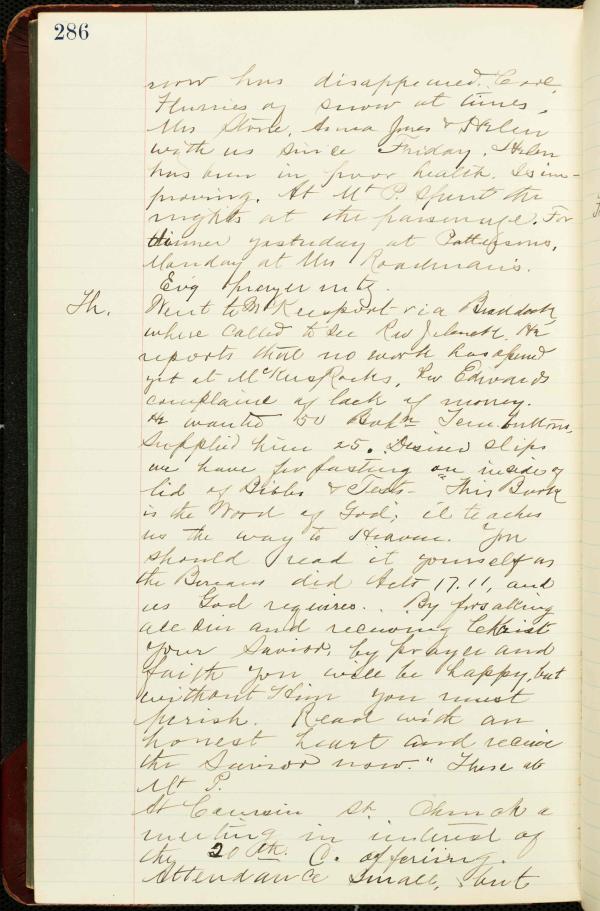 286
now has disappeared. Cool,
Flurries of snow at times.
Mrs Stone, Anna Jones & Helen
with us since Friday. Helen
has been in poor health. Is im-
proving. At Mt P. Spent the
nights at the parsonage. For
dinner yesterday at Pattersons,
Monday at Mrs Roadman's.
Evg prayer mtg.
Th. Went to McKeesport via Braddock
where called to see Rev He
reports that no work has opened
yet at McKees Rocks, Rev Edwards
complains of lack of money.
He wanted 50 Tem. buttons.
Supplied him 25. Desired slips
we have for pasting on inside of
lid of Bibles & Tests - "This Book
is the Word of God; it teaches
us the way to Heaven. You
should read it yourself as
the Bereans did Acts 17.11, and
as God requires. By forsaking
all sin and receiving Christ
your Savior, by prayer and
faith you will be happy, but
without Him you must
perish. Read with an
honest heart and receive
the Savior now." These at
Mt P.
At St. Church a
meeting in interest of
the 20th. C. offering.
Attendance small, but